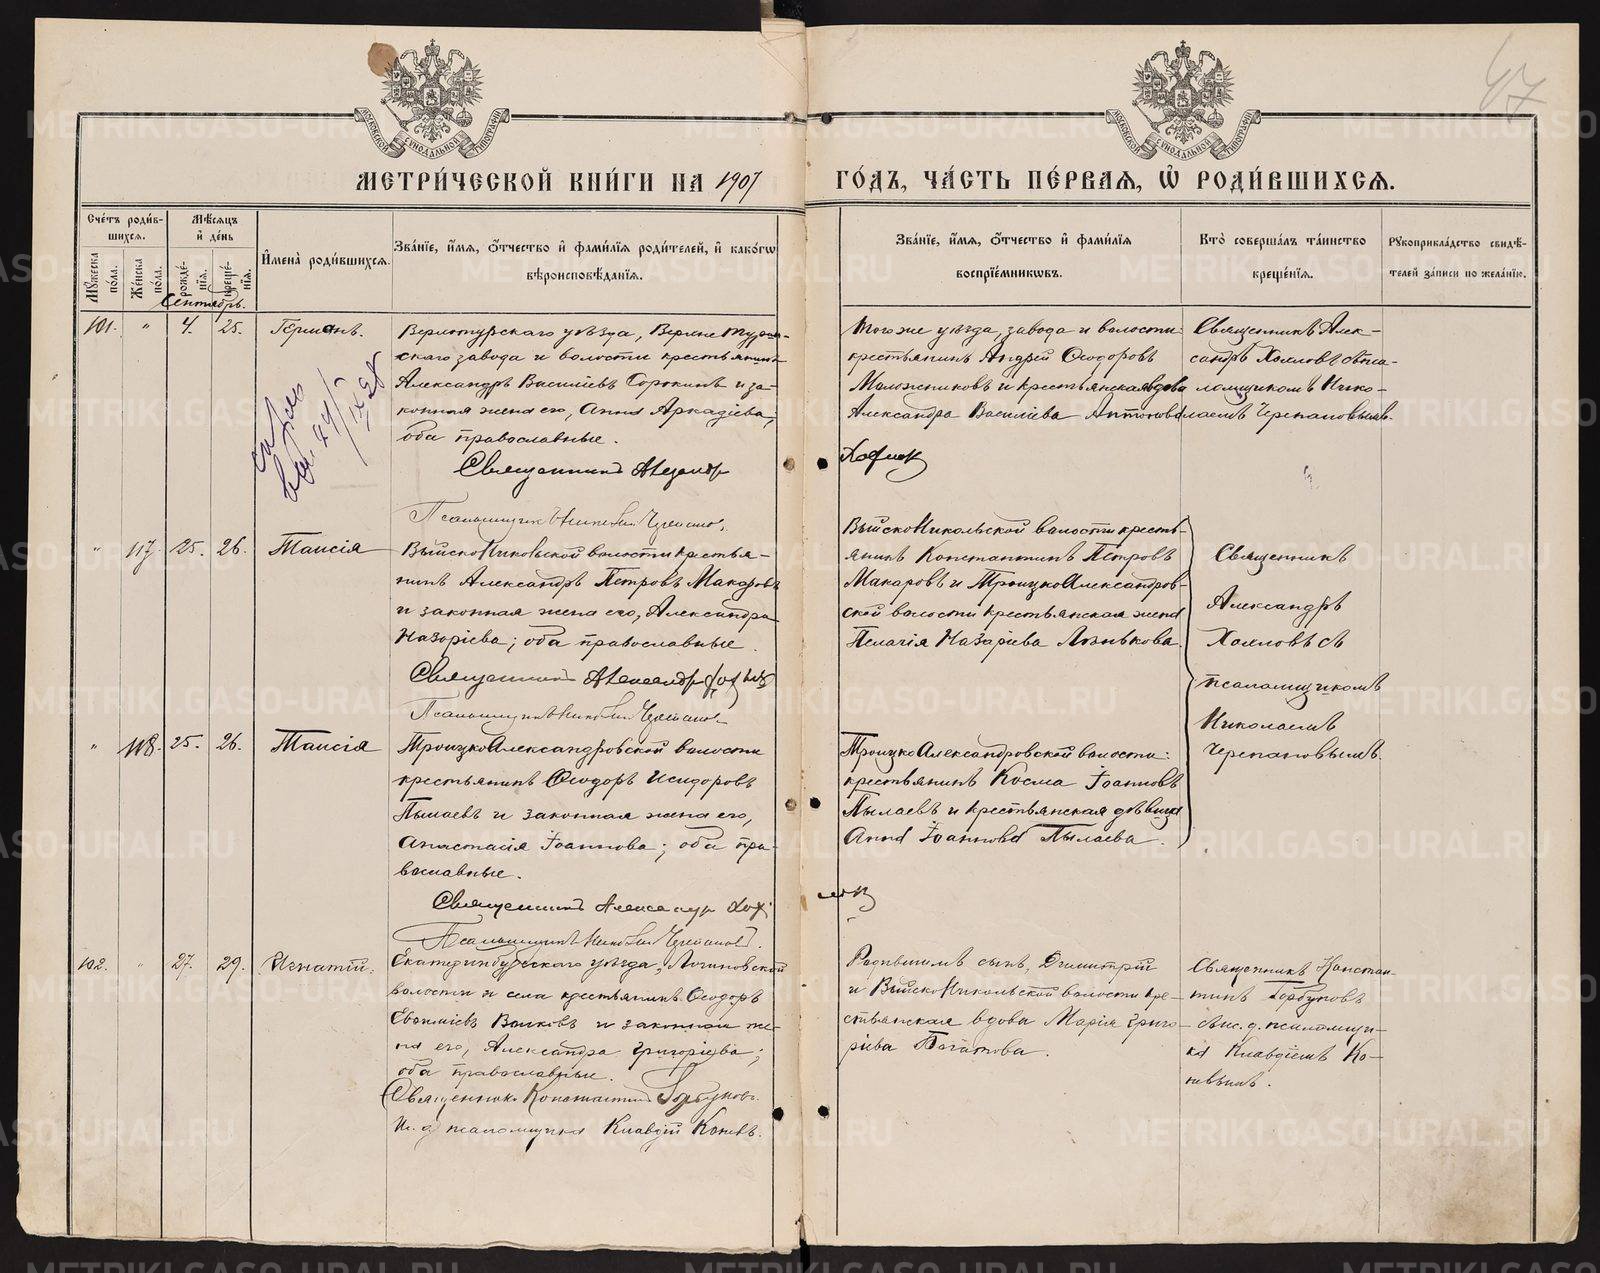 47
МЕТРИ́ЧЕСКОЙ КНИ́ГИ НА 1907 ГО́ДЪ, ЧА́СТЬ ПЕ́РВАЯ, Ѡ҆ РОДИ́ВШИХСЯ.
Сче́тъ роди́в-
шихся.
Мѣ́сяцъ
и҆ де́нь
И҆мена̀ роди́вшихся.
Зва́нїе, и҆́мя, ѻ҆́тчество и҆ фами́лїя роди́телей, и҆ како́гѡ
вѣроисповѣ́данїя.
Мꙋ́жеска по́ла.
Же́нска по́ла.
рожде́-нїя.
креще́-нїя.
Зва́нїе, и҆́мя, ѻ҆́тчество и҆ фами́лїя
воспрїе́мникѡвъ.
Кто̀ соверша́лъ та́инство
креще́нїя.
Рꙋкоприкла́дство свидѣ́-
телей за́писи по жела́нїю.
Сентябрь.
101. " 4. 25. Германъ.
Верхотурскаго уѣзда, Верхне Турин-
скаго завода и волости крестьянинъ
Александръ Василіевъ Сорокинъ и за-
конная жена его, Анна Аркадіева,
оба православные.
Священникъ Александр
Псаломщикъ Николай Черепанов.
Того же уѣзда, завода и волости:
крестьянинъ Андрей Ѳеодоровъ
и крестьянская вдова
Александра Василіева Антонова
Священникъ Алек-
сандръ Хохловъ съ пса-
ломщикомъ Нико-
лаемъ Черепановымъ.
" 117. 25. 26. Таисія
Выйско Никольской волости крестья-
нинъ Александръ Петровъ Макаровъ
и законная жена его, Александра
Назаріева; оба православные.
Священникъ Александр Хохлов
Псаломщикъ Николай Черепанов
Выйско Никольской волости кресть-
янинъ Константинъ Петровъ
Макаровъ и Троицко Александров-
ской волости крестьянская жена
Пелагія Назаріева
Священникъ
Александръ
Хохловъ съ
псаломщикомъ
Николаемъ
Черепановымъ.
" 118. 25. 26. Таисія
Троицко Александровской волости
крестьянинъ Ѳеодоръ Исидоровъ
Пылаевъ и законная жена его,
Анастасія Іоаннова; оба пра-
вославные.
Священникъ Александр Хох
Псаломщикъ Николай Черепанов.
Троицко Александровской волости:
крестьянинъ Косма Іоанновъ
Пылаевъ и крестьянская дѣвица
Анна Іоаннова Пылаева.
102. " 27. 29. Игнатій.
Екатеринбургскаго уѣзда, Логиновской
волости и села крестьянинъ Ѳеодоръ
Евѳиміевъ Волковъ и законная же-
на его, Александра Григоріева;
оба православные.
Священникъ Константинъ Горбуновъ.
И. д. псаломщика Клавдій Коневъ.
Родившимъ сынъ, Димитрій
и Выйско Никольской волости кре-
стьянская вдова Марія Григо-
ріева Богатова.
Священникъ Констан-
тинъ Горбуновъ
съ и. д. псаломщи-
ка Клавдіемъ Ко-
невымъ.
METRIKI.GASO-URAL.RU